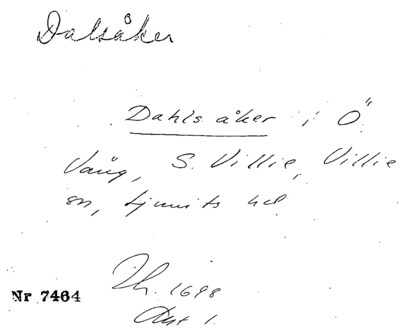 Dalsåker
Dahls åker i Ö
Vång, S. Villie, Villie
sn, Ljunits hd
Jh. 1698
Akt 1.
Nr 7464